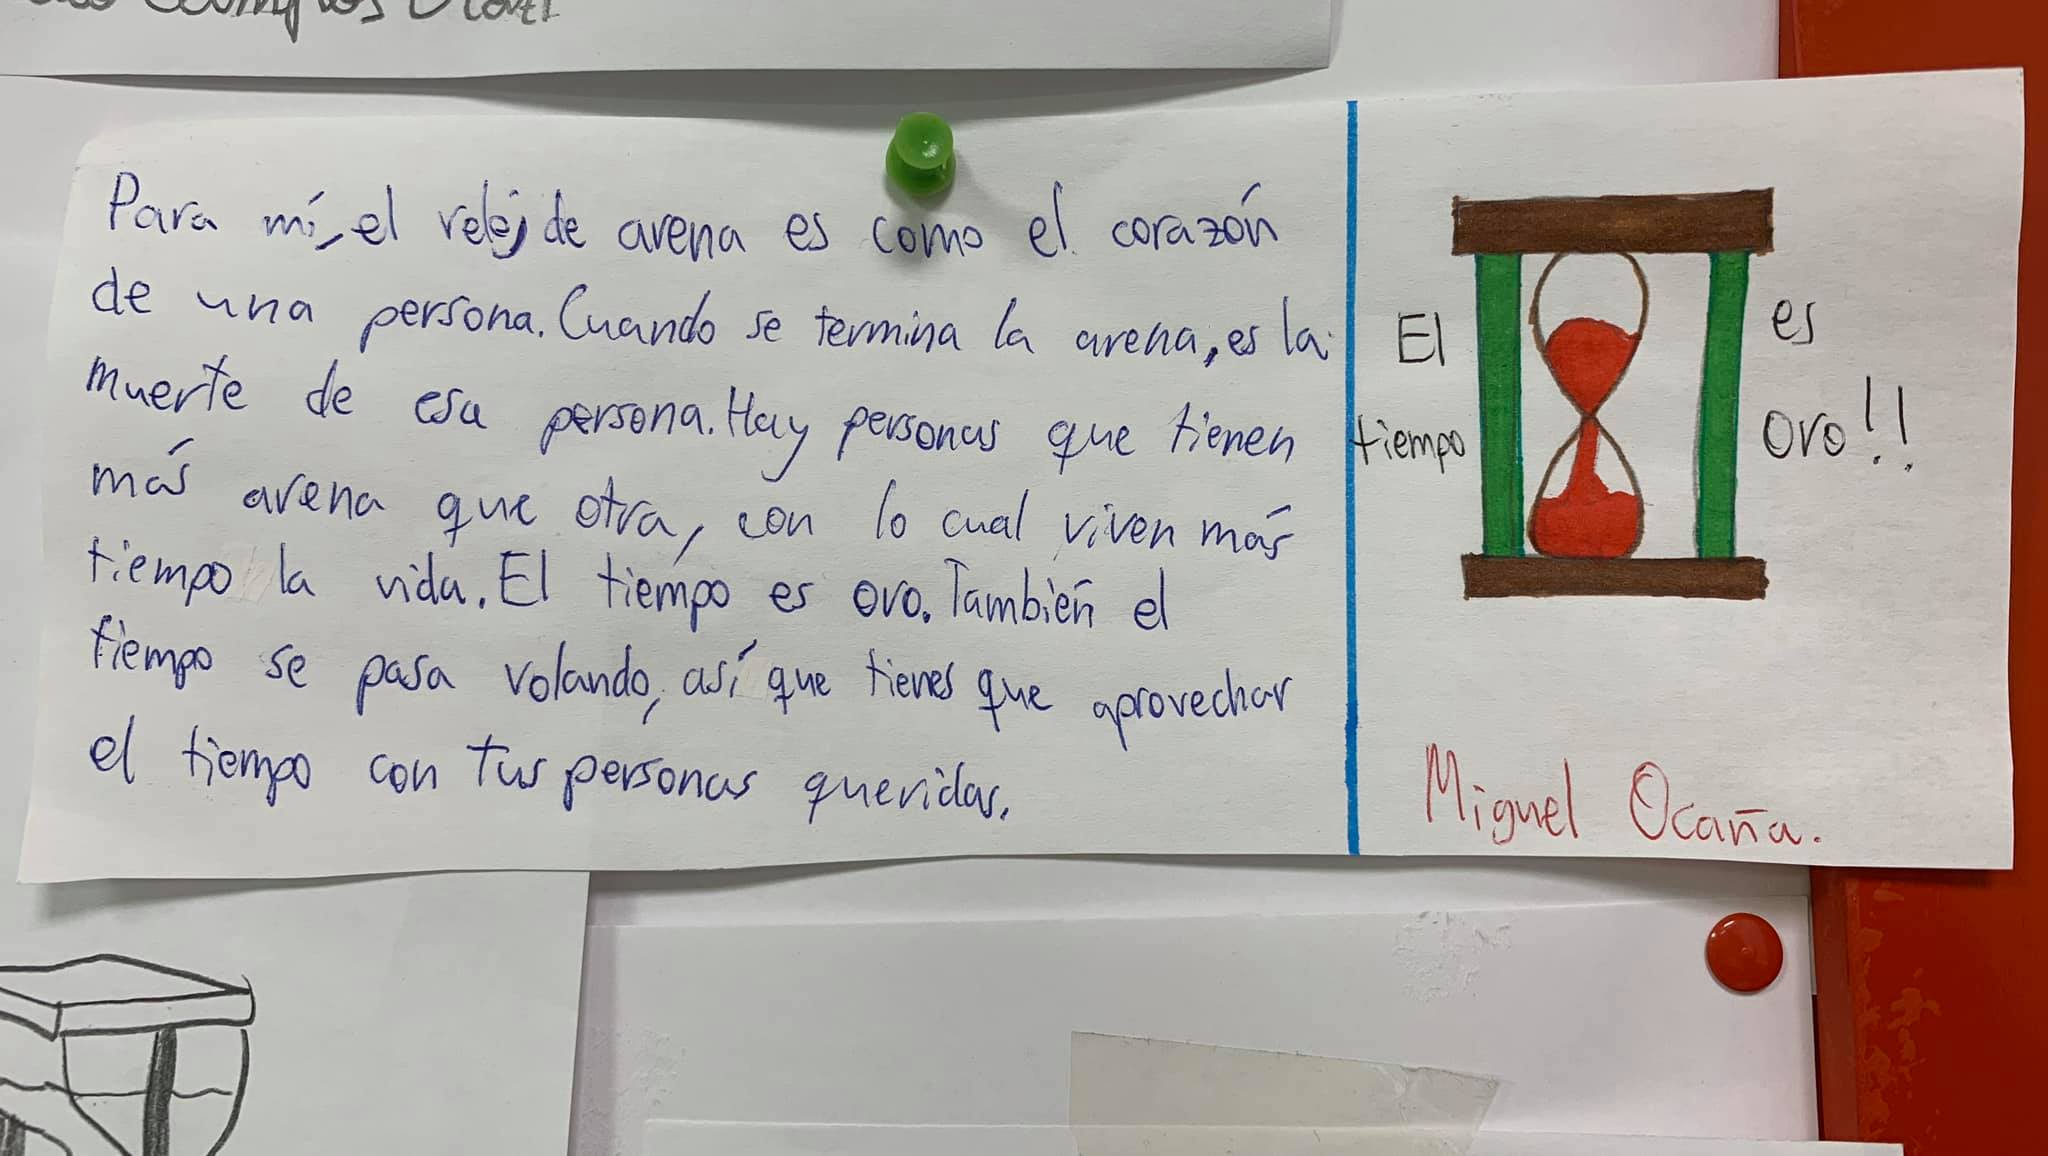 Para mí, el reloj de arena es como el corazón
de una persona. Cuando se termina la arena, es la
muerte de esa persona. Hay personas que tienen
más arena que otra, con lo cual viven más
tiempo la vida. El tiempo es oro. También el
tiempo se pasa volando, así que tienes que aprovechar
el tiempo con tus personas queridas.
El
tiempo
es
oro!!
Miguel Ocaña.